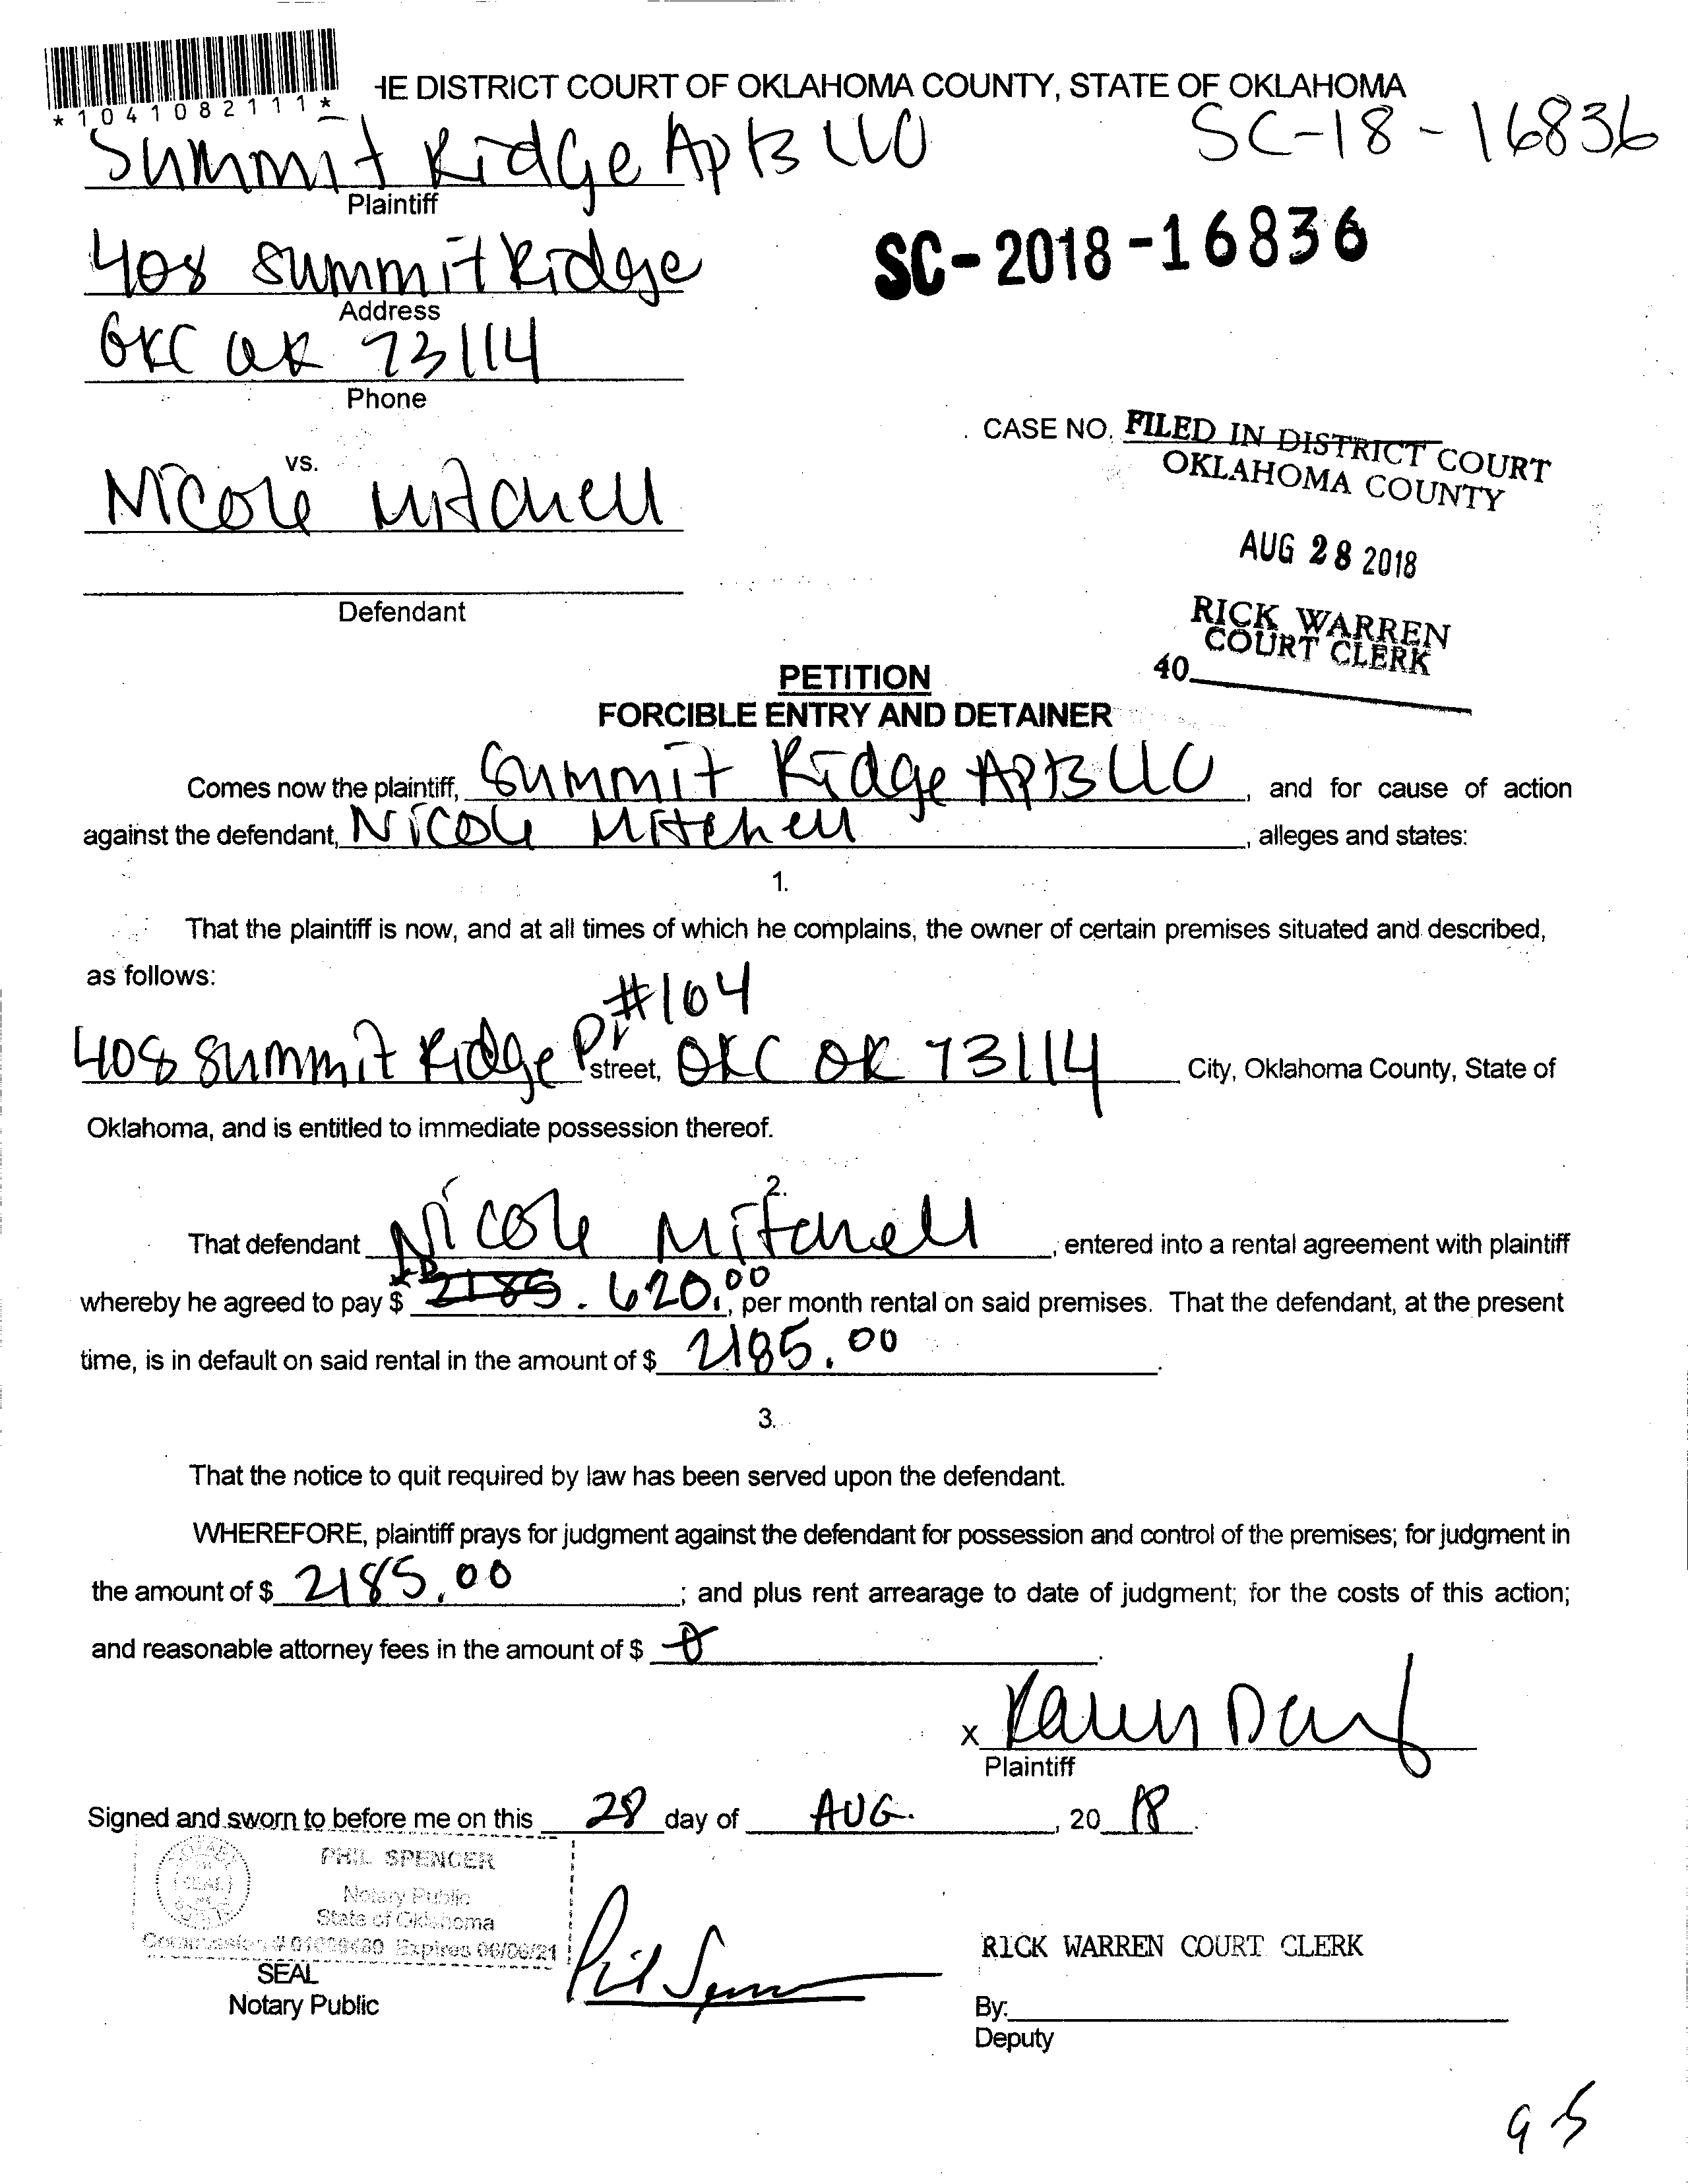 *1041082111*
HE DISTRICT COURT OF OKLAHOMA COUNTY, STATE OF OKLAHOMA
Summit Ridge Apts LLC
SC-18-16836
Plaintiff
408 Summit Ridge
SC-2018-16836
Address
OKC OK 73114
Phone
CASE NO.
FILED IN DISTRICT COURT
OKLAHOMA COUNTY
vs.
Nicole Mitchell
AUG 28 2018
Defendant
RICK WARREN
COURT CLERK
40
PETITION
FORCIBLE ENTRY AND DETAINER
Comes now the plaintiff, Summit Ridge Apts LLC, and for cause of action
against the defendant, Nicole Mitchell, alleges and states:
1.
That the plaintiff is now, and at all times of which he complains, the owner of certain premises situated and described,
as follows:
#104
408 Summit Ridge Dr street, OKC OK 73114 City, Oklahoma County, State of
Oklahoma, and is entitled to immediate possession thereof.
2.
That defendant Nicole Mitchell, entered into a rental agreement with plaintiff
whereby he agreed to pay $ 2185. 620.00, per month rental on said premises. That the defendant, at the present
time, is in default on said rental in the amount of $ 2185.00.
3.
That the notice to quit required by law has been served upon the defendant.
WHEREFORE, plaintiff prays for judgment against the defendant for possession and control of the premises; for judgment in
the amount of $ 2185.00; and plus rent arrearage to date of judgment; for the costs of this action;
and reasonable attorney fees in the amount of $ 0.
X Karen
Plaintiff
Signed and sworn to before me on this 28 day of AUG., 20 18.
PHIL SPENCER
(SEAL)
Notary Public
State of Oklahoma
Commission # Expires 06/06/21
SEAL
Notary Public
Phil Spencer
RICK WARREN COURT CLERK
By:
Deputy
95